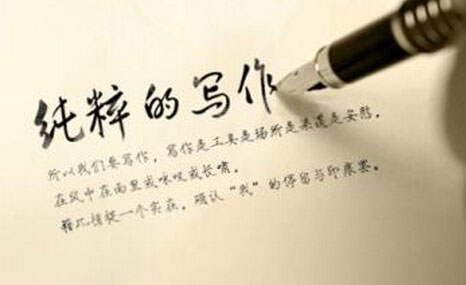 纯粹的写作
所以我们要写作，写作是工具是场所是柔道是安慰。
在风中在雨里或咏叹或长啸。
籍此捕捉一个实在，确认“我”的停留与印象里。